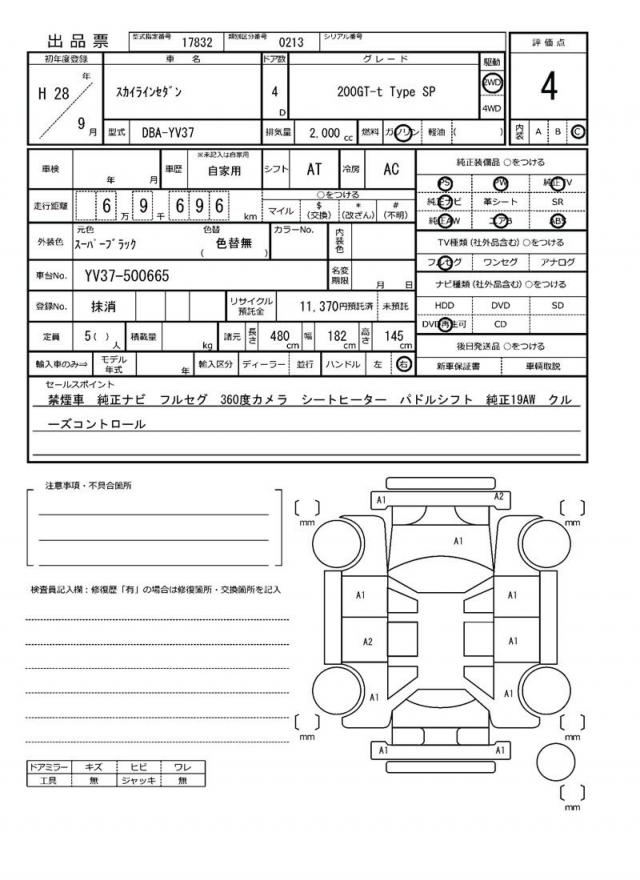 出品票 型式指定番号 17832 類別区分番号 0213 シリアル番号
初年度登録 車名 ドア数 グレード 駆動 評価点
H 28 年 9 月 スカイラインセダン 4 D 200GT-t Type SP 2WD 4WD 4
型式 DBA-YV37 排気量 2,000 cc 燃料 ガソリン 軽油 ( ) 内装 A B C
車検 年 月 車歴 ※未記入は自家用 自家用 シフト AT 冷房 AC 純正装備品 ○をつける
PS PW 純正TV
走行距離 6 万 9 千 6 9 6 km ○をつける マイル $ (交換) * (改ざん) # (不明)
純正ナビ 革シート SR
純正AW エアB ABS
外装色 元色 スーパーブラック 色替 ( 色替無 ) カラーNo. 内装色
TV種類 (社外品含む) ○をつける
フルセグ ワンセグ アナログ
車台No. YV37-500665 名変期限 月 日
ナビ種類 (社外品含む) ○をつける
登録No. 抹消 リサイクル預託金 11,370円預託済 未預託
HDD DVD SD
DVD再生可 CD
定員 5( ) 人 積載量 kg 諸元 長さ 480 cm 幅 182 cm 高さ 145 cm
後日発送品 ○をつける
輸入車のみ⇒ モデル年式 年 輸入区分 ディーラー 並行 ハンドル 左 右
新車保証書 車輌取説
セールスポイント
禁煙車 純正ナビ フルセグ 360度カメラ シートヒーター パドルシフト 純正19AW クル
ーズコントロール
注意事項・不具合箇所
検査員記入欄:修復歴「有」の場合は修復箇所・交換箇所を記入
A1 A2
mm mm
A1
A1 A1
A2 A1
A1 A1
mm mm
A1 A1
mm
ドアミラー キズ ヒビ ワレ
工具 無 ジャッキ 無